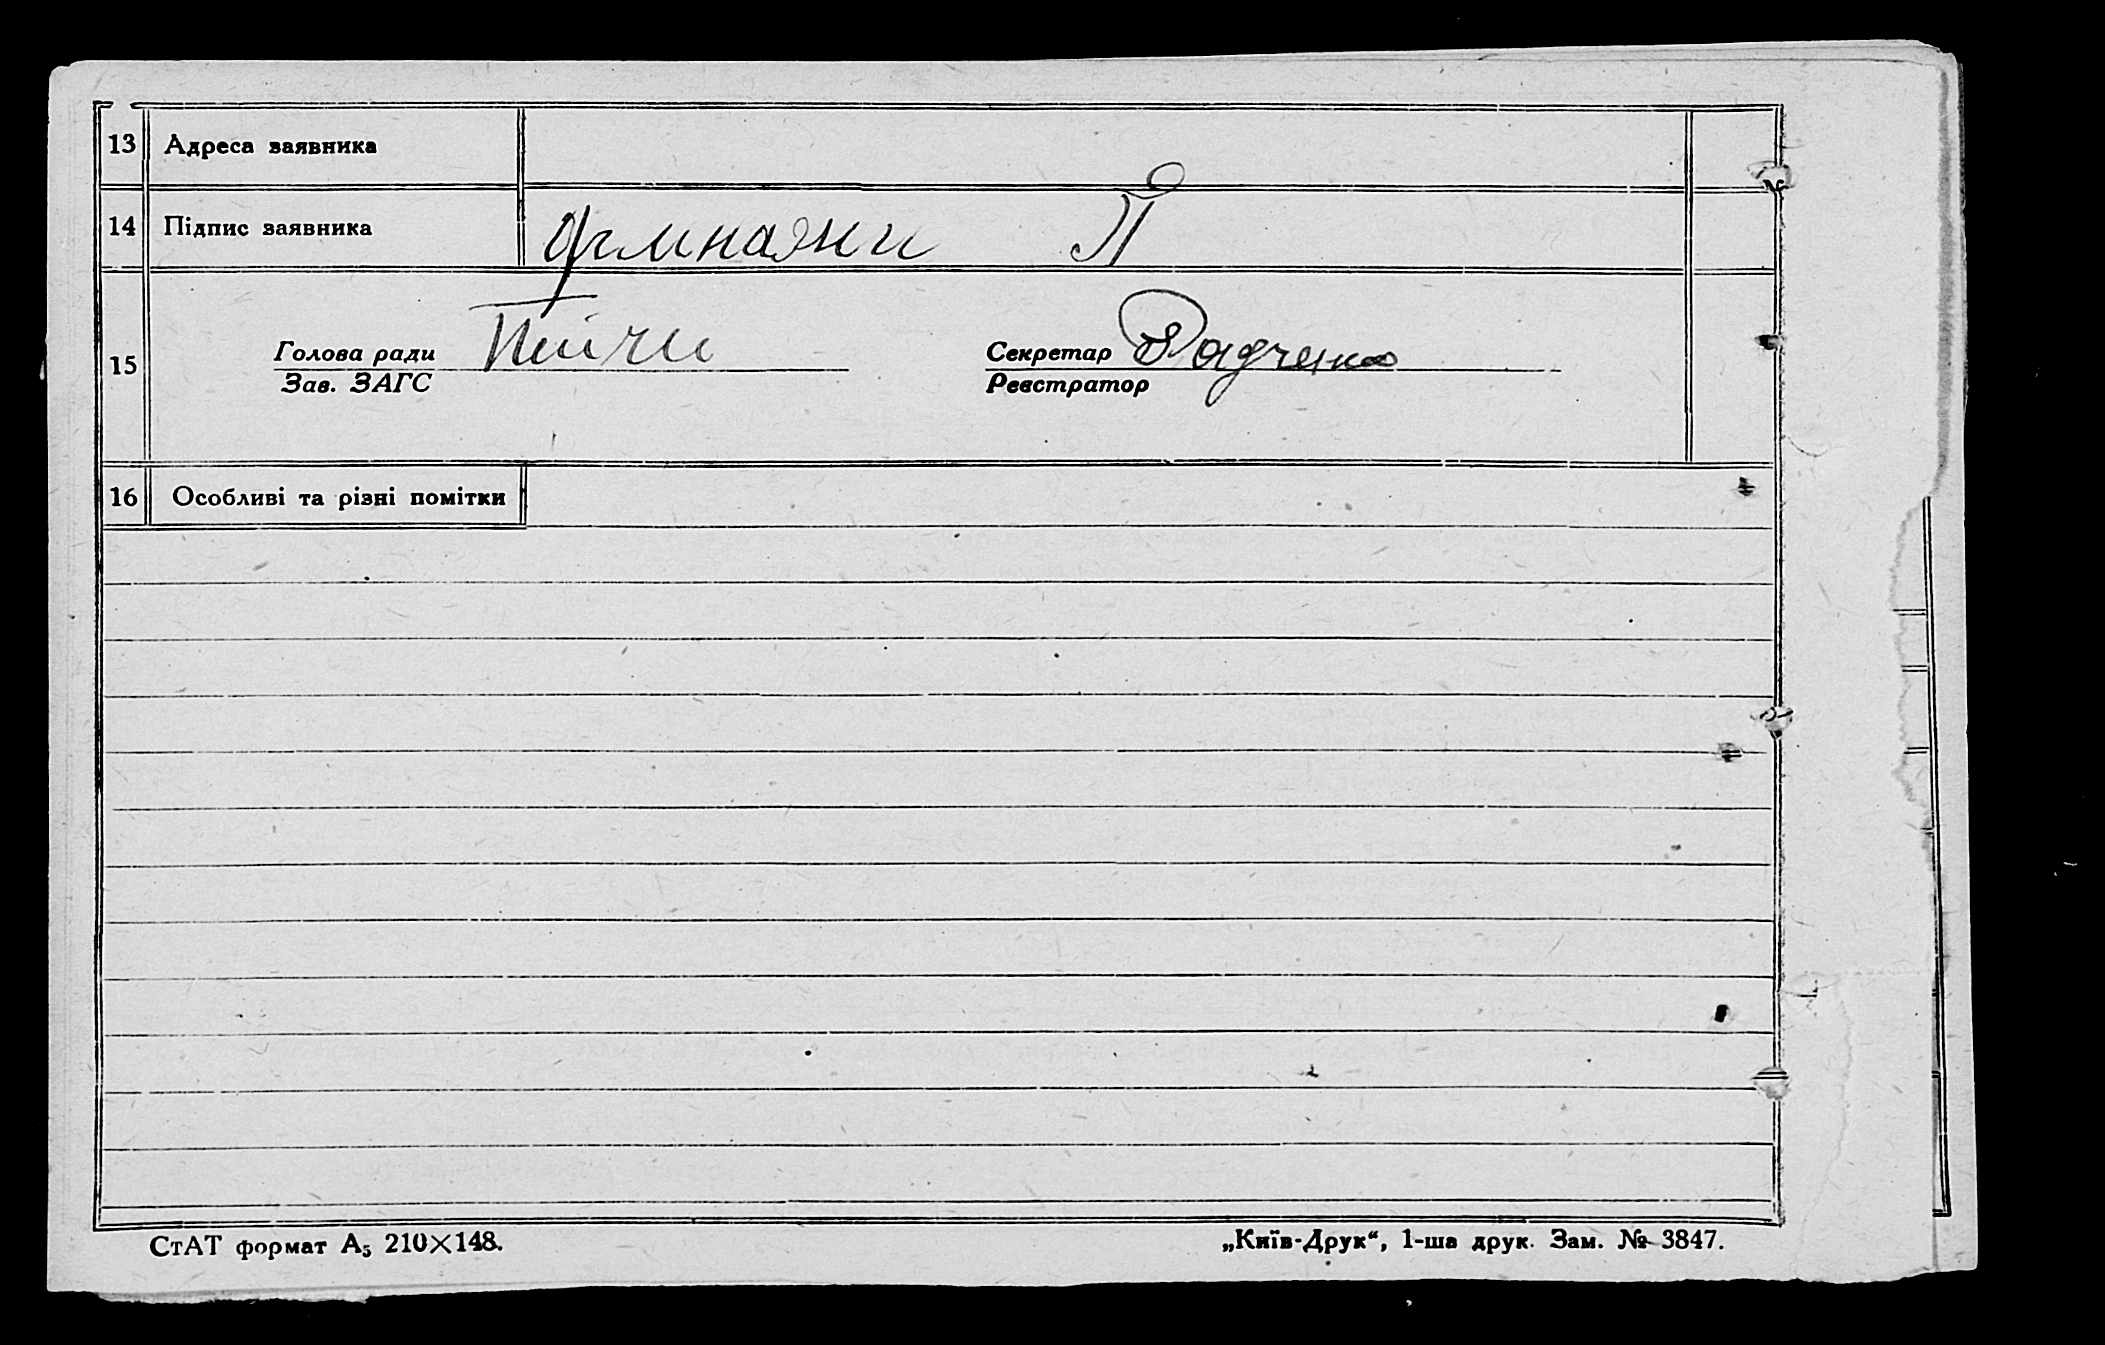 13 Адреса заявника
14 Підпис заявника
15 Голова ради Секретар Радченко
Зав. ЗАГС Реєстратор
16 Особливі та різні помітки
СтАТ формат А₅ 210×148.
„Київ-Друк“, 1-ша друк. Зам. № 3847.